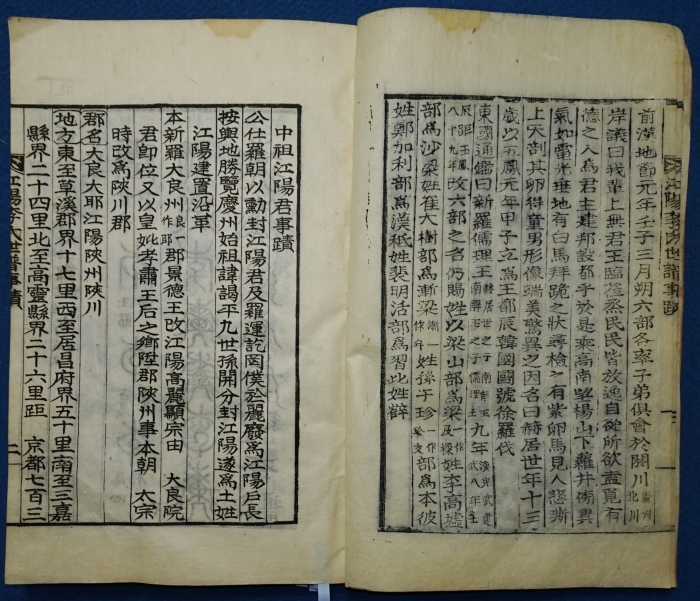 前漢地節元年壬子三月朔六部各率子弟俱會於閼川
岸議曰我輩上無君王臨蒞蒸民民皆放逸自從所欲盍覓有
德之人爲君主建邦設都乎於是乘高南望楊山下蘿井傍異
氣如電光垂地有白馬拜跪之狀尋檢之有紫卵馬見人悲嘶
上天剖其卵得童男形像端美驚異之因名曰赫居世年十三
歲以五鳳元年甲子立爲王都辰韓國國號徐羅伐
東國通鑑曰新羅儒理王九年
改六部之名仍賜姓以梁山部爲梁及姓李高墟
部爲沙梁姓崔大樹部爲漸梁姓孫于珍部爲本彼
姓鄭加利部爲漢祗姓裴明活部爲習比姓薛
江陽李氏世譜事蹟
中祖江陽君事蹟
公仕羅朝以勳封江陽君及羅運訖罔僕於麗廢爲江陽戶長
按輿地勝覽慶州始祖諱謁平九世孫開分封江陽遂爲土姓
江陽建置沿革
本新羅大良州良一作耶郡景德王改江陽高麗顯宗由大良院
君卽位又以皇妣孝肅王后之鄕陞郡陜州事本朝 太宗
時改爲陜川郡
郡名大良大耶江陽陜州陜川
地方東至草溪郡界十七里西至居昌府界五十里南至三嘉
縣界二十四里北至高靈縣界二十六里距 京都七百三
江陽李氏世譜事蹟 二